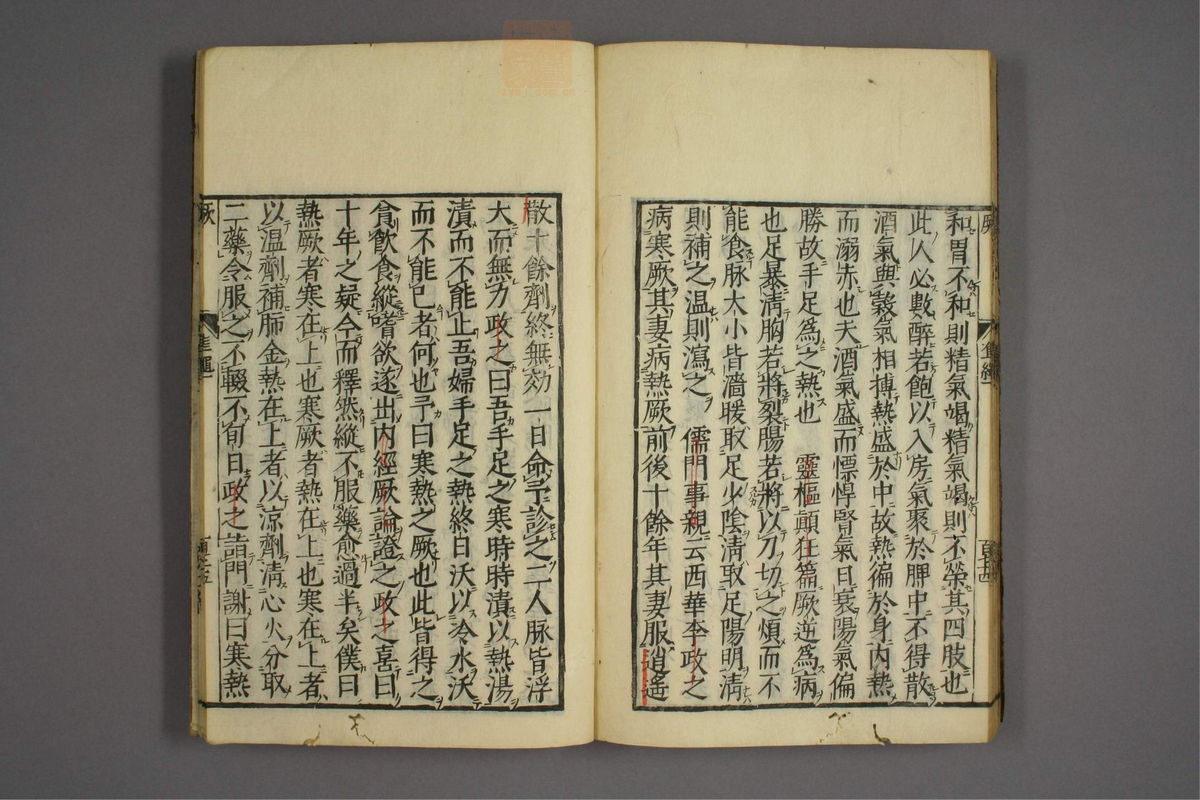 和胃不和則精氣竭精氣竭則不榮其四肢也
此人必數醉若飽以入房氣聚於脾中不得散
酒氣與穀氣相搏熱盛於中故熱徧於身内熱
而溺赤也夫酒氣盛而慓悍腎氣日衰陽氣偏
勝故手足爲之熱也　靈樞顛狂篇厥逆爲病
也足暴清胸若將裂腸若將以刀切之煩而不
能食脉大小皆濇暖取足少陰清取足陽明清
則補之温則瀉之　儒門事親云西華李政之
病寒厥其妻病熱厥前後十餘年其妻服逍遙
散十餘劑終無効一日命予診之二人脉皆浮
大而無力政之曰吾手足之寒時時漬以熱湯
漬而不能止吾婦手足之熱終日沃以冷水沃
而不能已者何也予曰寒熱之厥也此皆得之
貪飲食縱嗜欲遂出内經厥論證之政之喜曰
十年之疑今而釋然縱不服藥愈過半矣僕曰
熱厥者寒在上也寒厥者熱在上也寒在上者
以温劑補肺金熱在上者以涼劑清心火分取
二藥令服之不輟不旬日政之詣門謝曰寒熱
厥